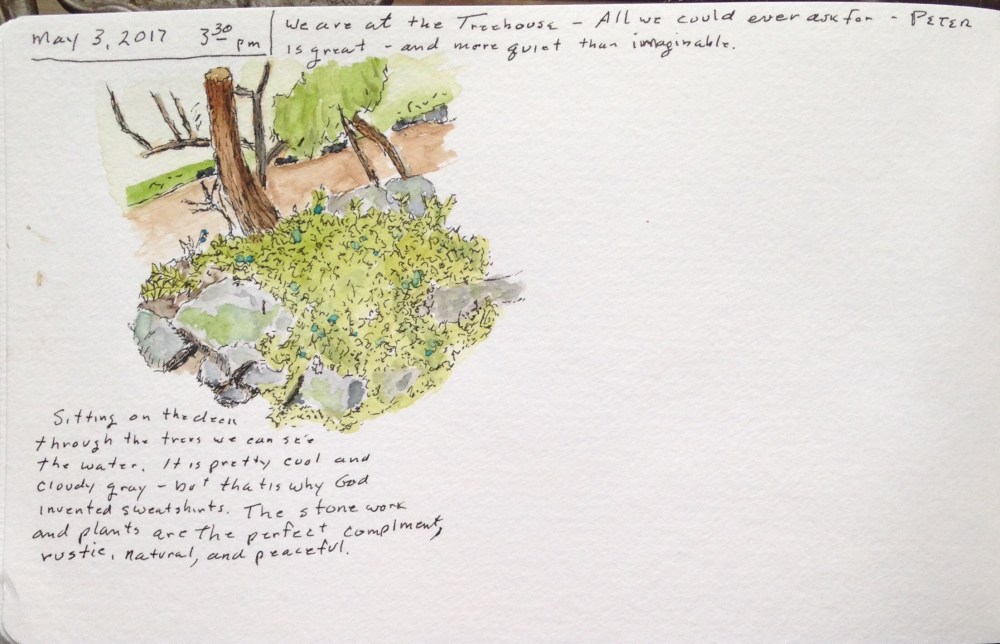 May 3, 2017 3:30 pm
We are at the Treehouse - All we could ever ask for - PETER
is great - and more quiet than imaginable.
Sitting on the deck
through the trees we can see
the water. It is pretty cool and
cloudy gray - but that is why God
invented sweatshirts. The stone work
and plants are the perfect complment,
rustic, natural, and peaceful.